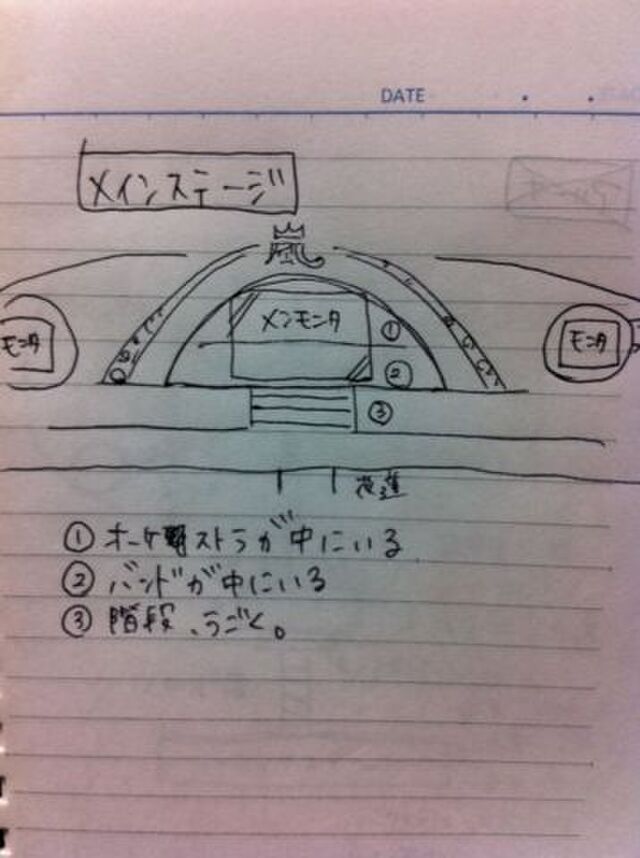 DATE
メインステージ
嵐
メンモニタ
①
モニタ
モニタ
②
③
花道
① オーケストラが中にいる
② バンドが中にいる
③ 階段、うごく。